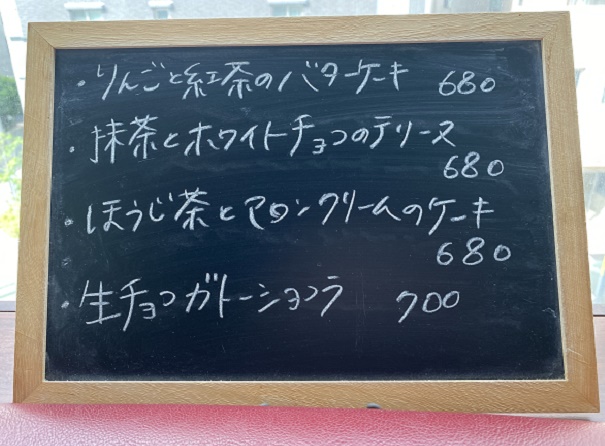 ・りんごと紅茶のバターケーキ 680
・抹茶とホワイトチョコのテリーヌ
680
・ほうじ茶とマロンクリームのケーキ
680
・生チョコガトーショコラ 700